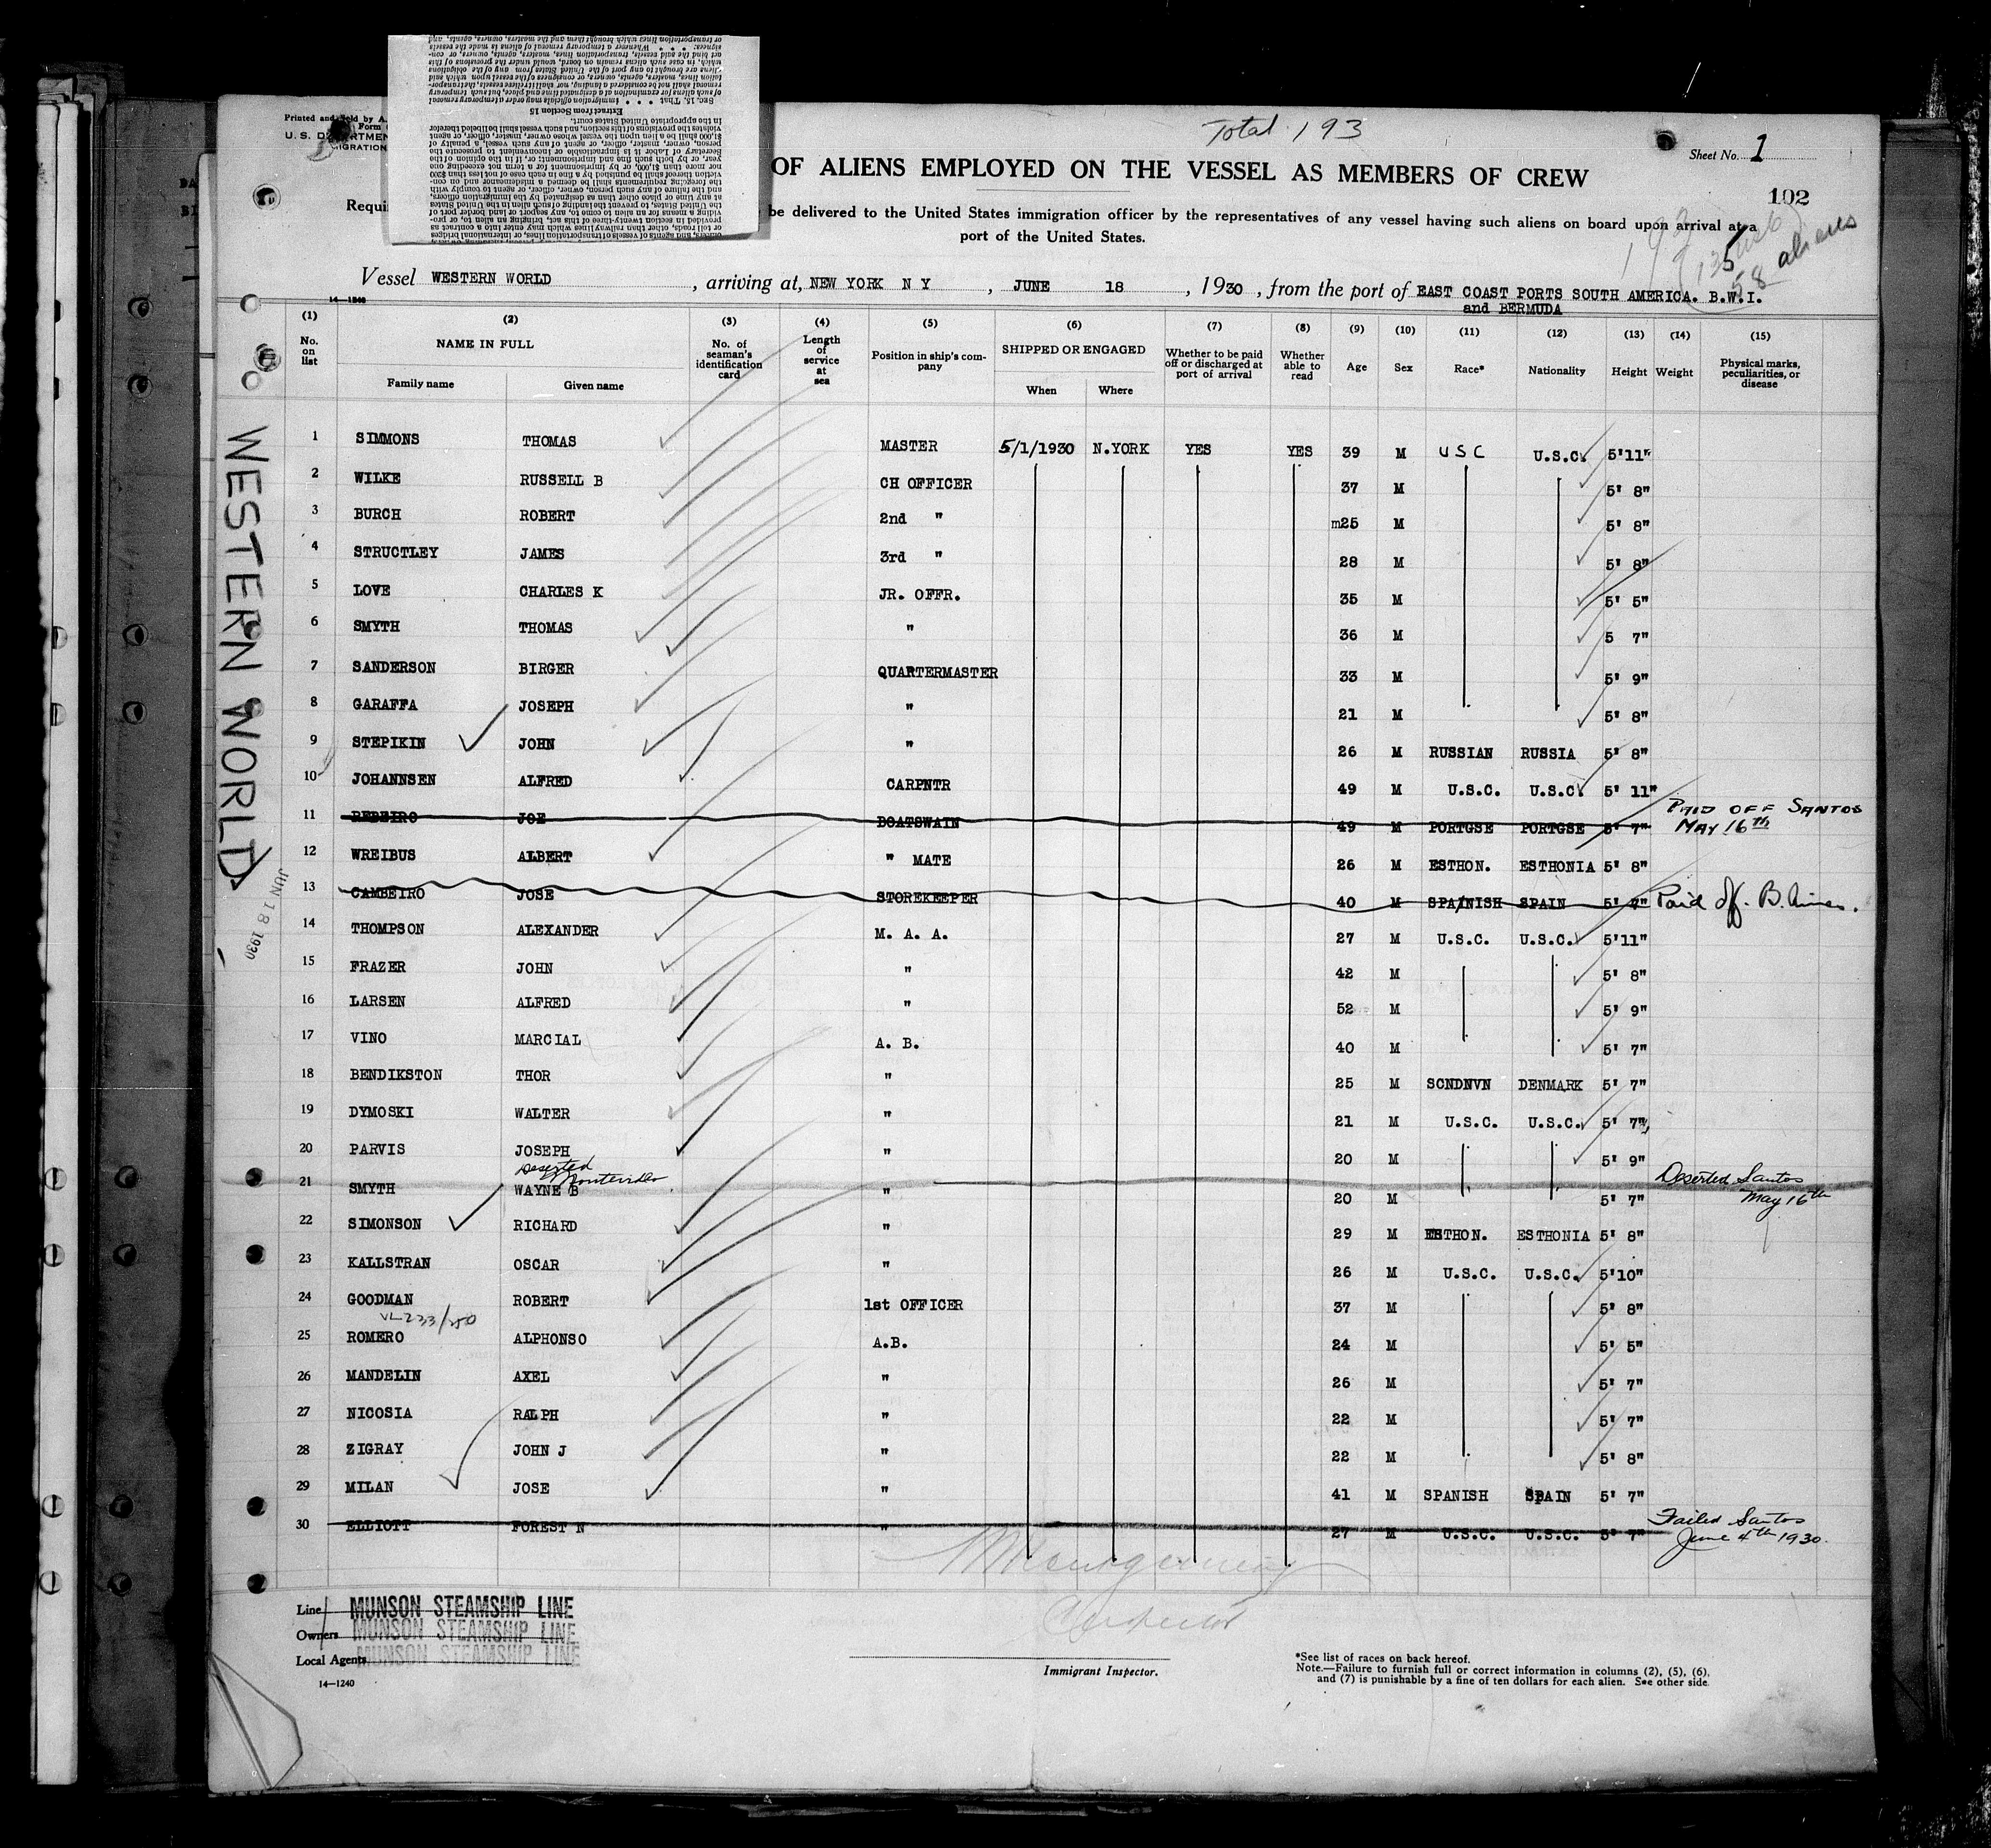 or transportation lines which brought them and the masters, owners, agents, and
signees: * * * Whenever a temporary removal of aliens is made the vessels
Extract from Section 15
in the appropriate United States court.
Printed and Sold by A.
Form
U. S. DEPARTMEN
MIGRATION
Total 193
Sheet No. 1
OF ALIENS EMPLOYED ON THE VESSEL AS MEMBERS OF CREW
102
Requi
be delivered to the United States immigration officer by the representatives of any vessel having such aliens on board upon arrival at a
port of the United States.
58 aliens
Vessel WESTERN WORLD, arriving at, NEW YORK N Y, JUNE 18, 1930, from the port of EAST COAST PORTS SOUTH AMERICA. B.W.I.
and BERMUDA
14—1240
(1) (2) (3) (4) (5) (6) (7) (8) (9) (10) (11) (12) (13) (14) (15)
No. on list NAME IN FULL No. of seaman's identification card Length of service at sea Position in ship's company SHIPPED OR ENGAGED Whether to be paid off or discharged at port of arrival Whether able to read Age Sex Race* Nationality Height Weight Physical marks, peculiarities, or disease
Family name Given name When Where
1 SIMMONS THOMAS MASTER 5/1/1930 N.YORK YES YES 39 M U S C U.S.C. 5'11"
2 WILKE RUSSELL B CH OFFICER 37 M 5' 8"
3 BURCH ROBERT 2nd " m25 M 5' 8"
4 STRUCTLEY JAMES 3rd " 28 M 5' 8"
5 LOVE CHARLES K JR. OFFR. 35 M 5' 5"
6 SMYTH THOMAS " 36 M 5 7"
7 SANDERSON BIRGER QUARTERMASTER 33 M 5' 9"
8 GARAFFA JOSEPH " 21 M 5' 8"
9 STEPIKIN JOHN " 26 M RUSSIAN RUSSIA 5' 8"
10 JOHANNSEN ALFRED CARPNTR 49 M U.S.C. U.S.C. 5' 11"
11 REBEIRO JOE BOATSWAIN 49 M PORTGSE PORTGSE 5' 7" PAID OFF SANTOS MAY 16th
12 WREIBUS ALBERT " MATE 26 M ESTHON. ESTHONIA 5' 8"
13 CAMBEIRO JOSE STOREKEEPER 40 M SPANISH SPAIN 5' 7" Paid off. B. Aires.
14 THOMPSON ALEXANDER M. A. A. 27 M U.S.C. U.S.C. 5'11"
15 FRAZER JOHN " 42 M 5' 8"
16 LARSEN ALFRED " 52 M 5' 9"
17 VINO MARCIAL A. B. 40 M 5' 7"
18 BENDIKSTON THOR " 25 M SCNDNVN DENMARK 5' 7"
19 DYMOSKI WALTER " 21 M U.S.C. U.S.C. 5' 7"
20 PARVIS JOSEPH " 20 M 5' 9"
Deserted Montevideo
21 SMYTH WAYNE B " 20 M 5' 7" Deserted Santos May 16th
22 SIMONSON RICHARD " 29 M ESTHON. ESTHONIA 5' 8"
23 KALLSTRAN OSCAR " 26 M U.S.C. U.S.C. 5'10"
24 GOODMAN ROBERT 1st OFFICER 37 M 5' 8"
25 ROMERO ALPHONSO A.B. 24 M 5' 5"
26 MANDELIN AXEL " 26 M 5' 7"
27 NICOSIA RALPH " 22 M 5' 7"
28 ZIGRAY JOHN J " 22 M 5' 8"
29 MILAN JOSE " 41 M SPANISH SPAIN 5' 7"
30 ELLIOTT FOREST N " 27 M U.S.C. U.S.C. 5' 7" Failed Santos June 4th 1930.
WESTERN WORLD
JUN 18 1930
Line MUNSON STEAMSHIP LINE
Owners MUNSON STEAMSHIP LINE
Local Agents MUNSON STEAMSHIP LINE
14—1240
Immigrant Inspector.
*See list of races on back hereof.
Note.—Failure to furnish full or correct information in columns (2), (5), (6),
and (7) is punishable by a fine of ten dollars for each alien. See other side